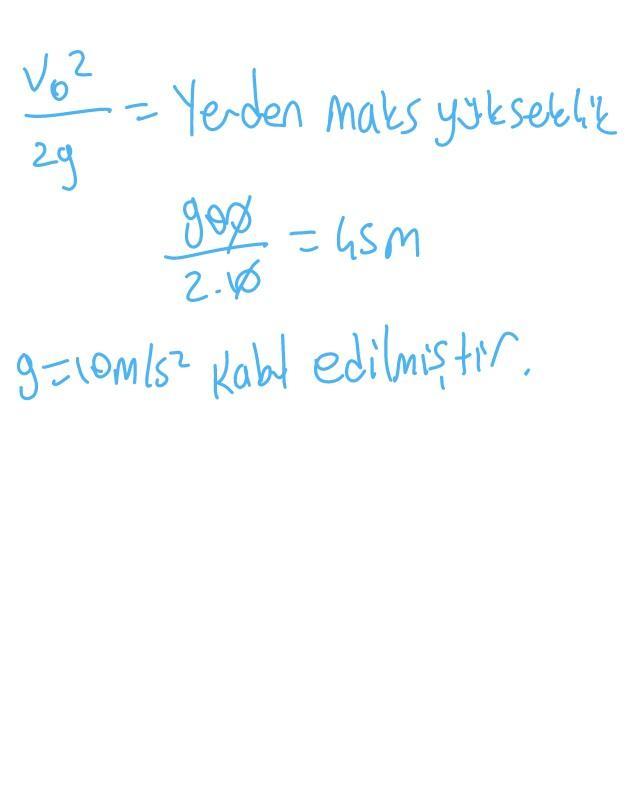 V₀²/2g = Yerden maks yükseklik
900/2.10 = 45m
g=10m/s² Kabul edilmiştir.